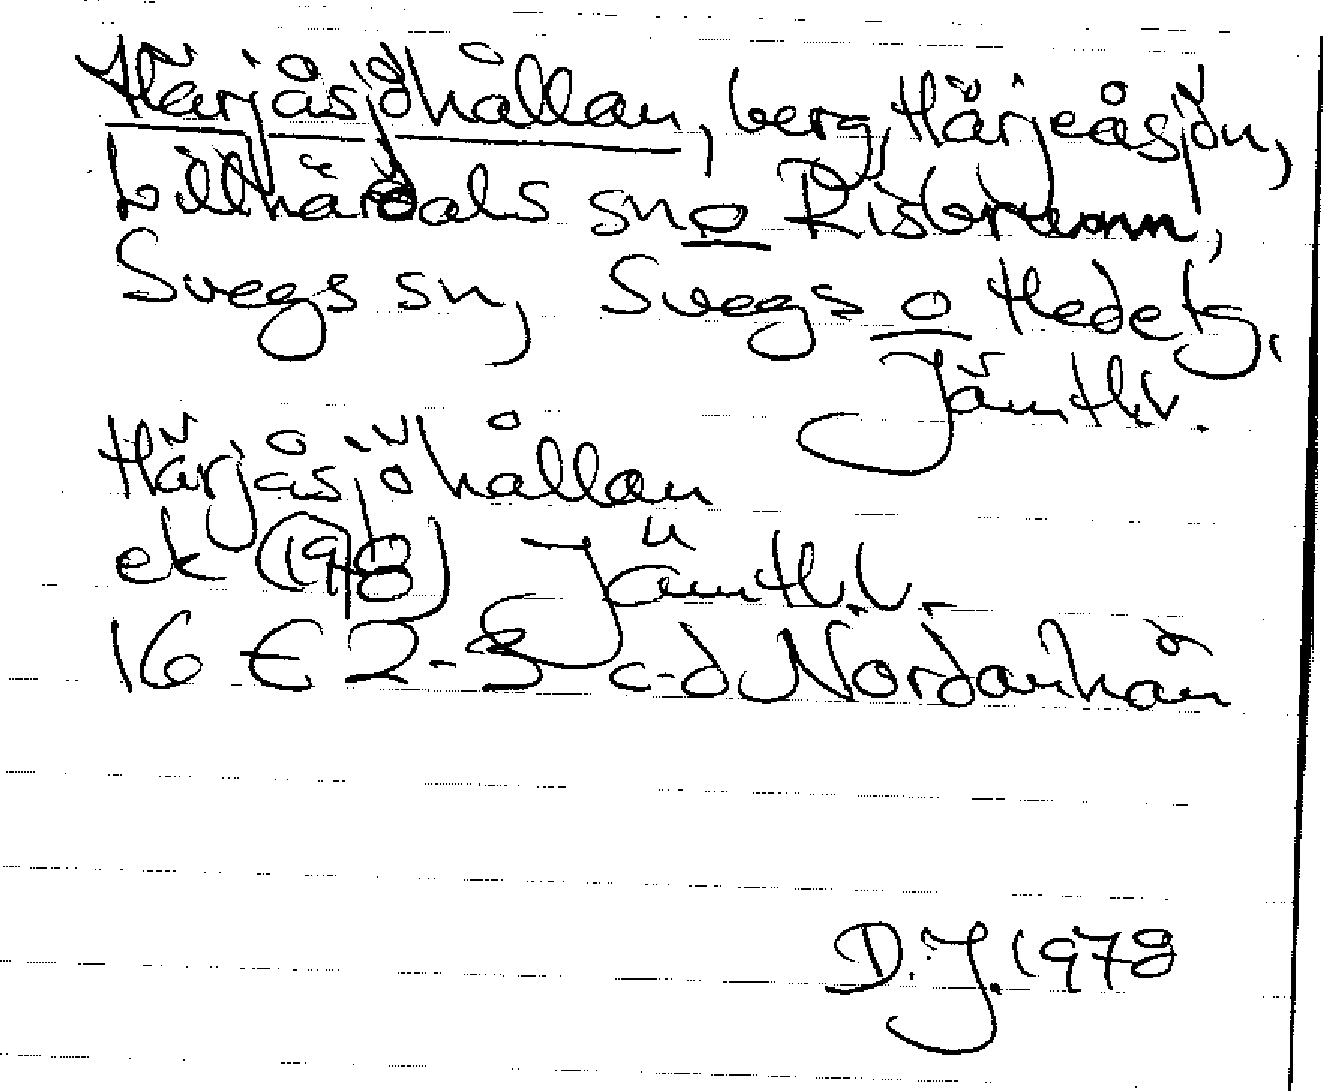 Härjåsjöhållan, berg, Härjeåsjön,
Lillhärdals sn o Risbrunn,
Svegs sn, Svegs o Hede tg,
Jämtl.l.
Härjåsjöhållan
ek (1978) Jämtl.l.
16 E 2-3 c-d Nordanhån
D.J. 1978